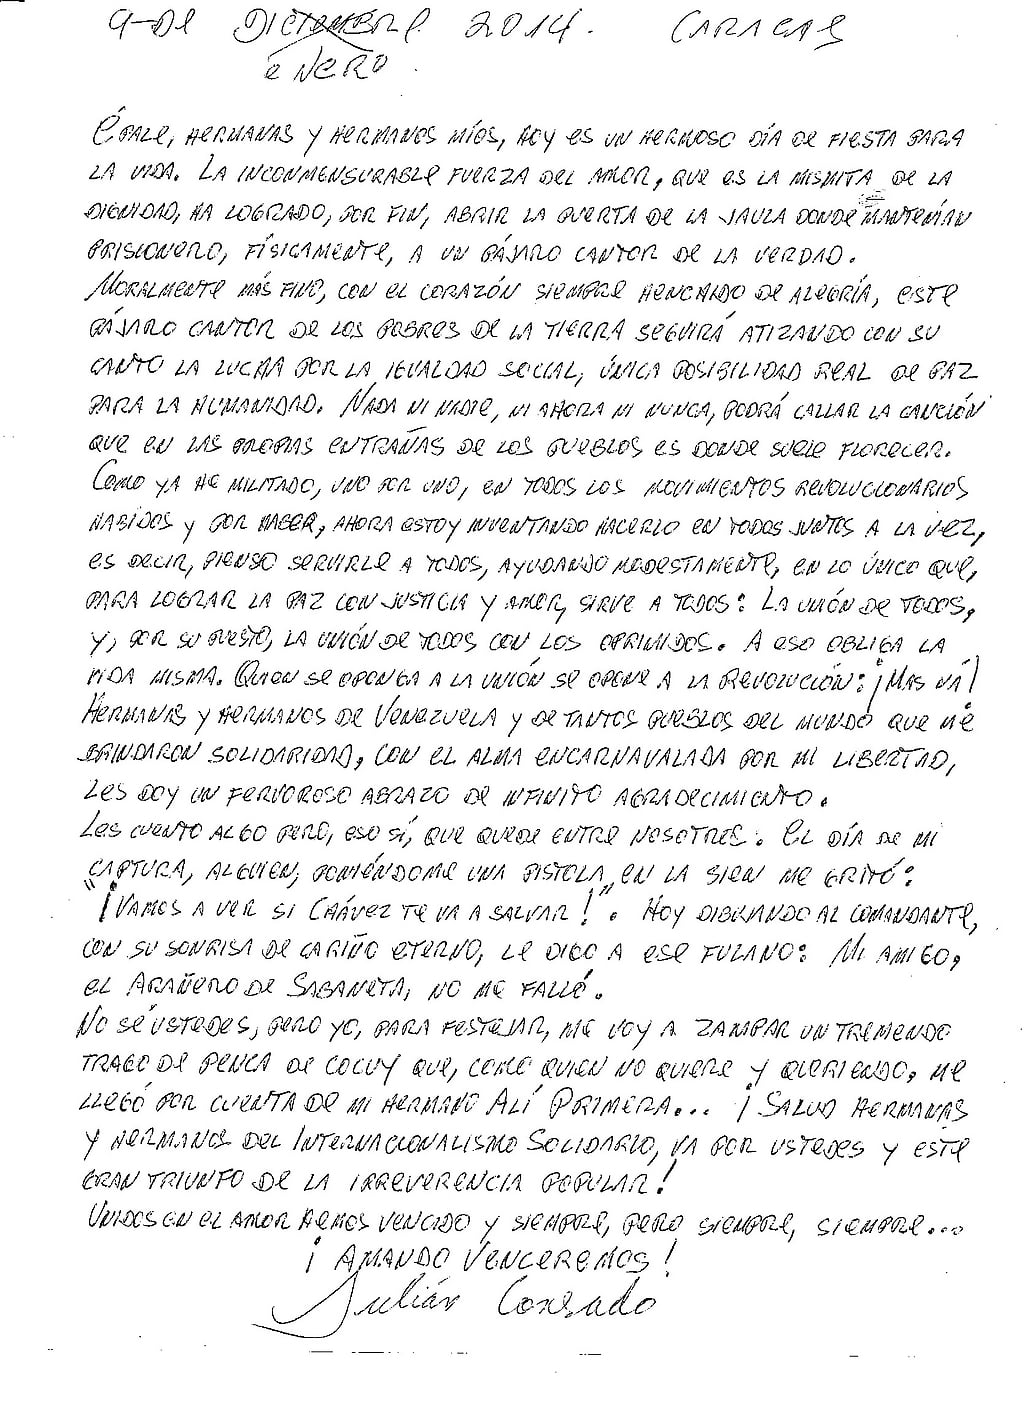 9 DE DICIEMBRE 2014. CARACAS
ENERO.
ÉPALE, HERMANAS Y HERMANOS MÍOS, HOY ES UN HERMOSO DÍA DE FIESTA PARA
LA VIDA. LA INCONMENSURABLE FUERZA DEL AMOR, QUE ES LA MISMITA DE LA
DIGNIDAD, HA LOGRADO, POR FIN, ABRIR LA PUERTA DE LA JAULA DONDE MANTENÍAN
PRISIONERO, FÍSICAMENTE, A UN PÁJARO CANTOR DE LA VERDAD.
MORALMENTE MÁS FINO, CON EL CORAZÓN SIEMPRE HENCHIDO DE ALEGRÍA, ESTE
PÁJARO CANTOR DE LOS POBRES DE LA TIERRA SEGUIRÁ ATIZANDO CON SU
CANTO LA LUCHA POR LA IGUALDAD SOCIAL, ÚNICA POSIBILIDAD REAL DE PAZ
PARA LA HUMANIDAD. NADA NI NADIE, NI AHORA NI NUNCA, PODRÁ CALLAR LA CANCIÓN
QUE EN LAS PROPIAS ENTRAÑAS DE LOS PUEBLOS ES DONDE SUELE FLORECER.
COMO YA HE MILITADO, UNO POR UNO, EN TODOS LOS MOVIMIENTOS REVOLUCIONARIOS
HABIDOS Y POR HABER, AHORA ESTOY INVENTANDO HACERLO EN TODOS JUNTOS A LA VEZ,
ES DECIR, PIENSO SERVIRLE A TODOS, AYUDANDO MODESTAMENTE, EN LO ÚNICO QUE,
PARA LOGRAR LA PAZ CON JUSTICIA Y AMOR, SIRVE A TODOS: LA UNIÓN DE TODOS,
Y, POR SUPUESTO, LA UNIÓN DE TODOS CON LOS OPRIMIDOS. A ESO OBLIGA LA
VIDA MISMA. QUIEN SE OPONGA A LA UNIÓN SE OPONE A LA REVOLUCIÓN: ¡MAS NÁ!
HERMANAS Y HERMANOS DE VENEZUELA Y DE TANTOS PUEBLOS DEL MUNDO QUE ME
BRINDARON SOLIDARIDAD, CON EL ALMA ENCARNAVALADA POR MI LIBERTAD,
LES DOY UN FERVOROSO ABRAZO DE INFINITO AGRADECIMIENTO.
LES CUENTO ALGO PERO, ESO SÍ, QUE QUEDE ENTRE NOSOTROS: EL DÍA DE MI
CAPTURA, ALGUIEN, PONIÉNDOME UNA PISTOLA EN LA SIEN ME GRITÓ:
"¡VAMOS A VER SI CHÁVEZ TE VA A SALVAR!". HOY DIBUJANDO AL COMANDANTE,
CON SU SONRISA DE CARIÑO ETERNO, LE DIGO A ESE FULANO: MI AMIGO,
EL ARAÑERO DE SABANETA, NO ME FALLÉ.
NO SÉ USTEDES, PERO YO, PARA FESTEJAR, ME VOY A ZAMPAR UN TREMENDO
TRAGO DE PENCA DE COCUY QUE, COMO QUIEN NO QUIERE Y QUERIENDO, ME
LLEGÓ POR CUENTA DE MI HERMANO ALÍ PRIMERA... ¡SALUD HERMANAS
Y HERMANOS DEL INTERNACIONALISMO SOLIDARIO, VA POR USTEDES Y ESTE
GRAN TRIUNFO DE LA IRREVERENCIA POPULAR!
UNIDOS EN EL AMOR HEMOS VENCIDO Y SIEMPRE, PERO SIEMPRE, SIEMPRE...
¡AMANDO VENCEREMOS!
Julián Conrado